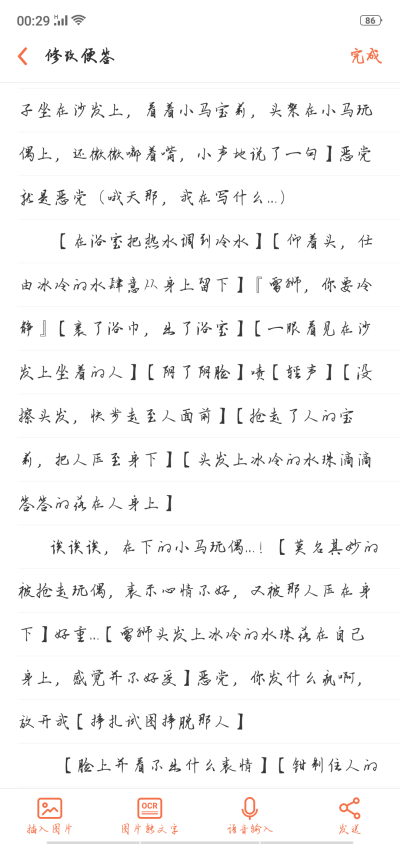 00:29
86
修改便签
完成
子坐在沙发上，看着小马宝莉，头架在小马玩
偶上，还微微嘟着嘴，小声地说了一句】恶党
就是恶党（哦天那，我在写什么...）
【在浴室把热水调到冷水】【仰着头，任
由冰冷的水肆意从身上留下】『雷狮，你要冷
静』【裹了浴巾，出了浴室】【一眼看见在沙
发上坐着的人】【阴了阴脸】啧【轻声】【没
擦头发，快步走至人面前】【抢走了人的宝
莉，把人压至身下】【头发上冰冷的水珠滴滴
答答的落在人身上】
诶诶诶，在下的小马玩偶...！【莫名其妙的
被抢走玩偶，表示心情不好，又被那人压在身
下】好重...【雷狮头发上冰冷的水珠落在自己
身上，感觉并不好受】恶党，你发什么疯啊，
放开我【挣扎试图挣脱那人】
【脸上并看不出什么表情】【钳制住人的
插入图片
OCR
图片转文字
语音输入
发送